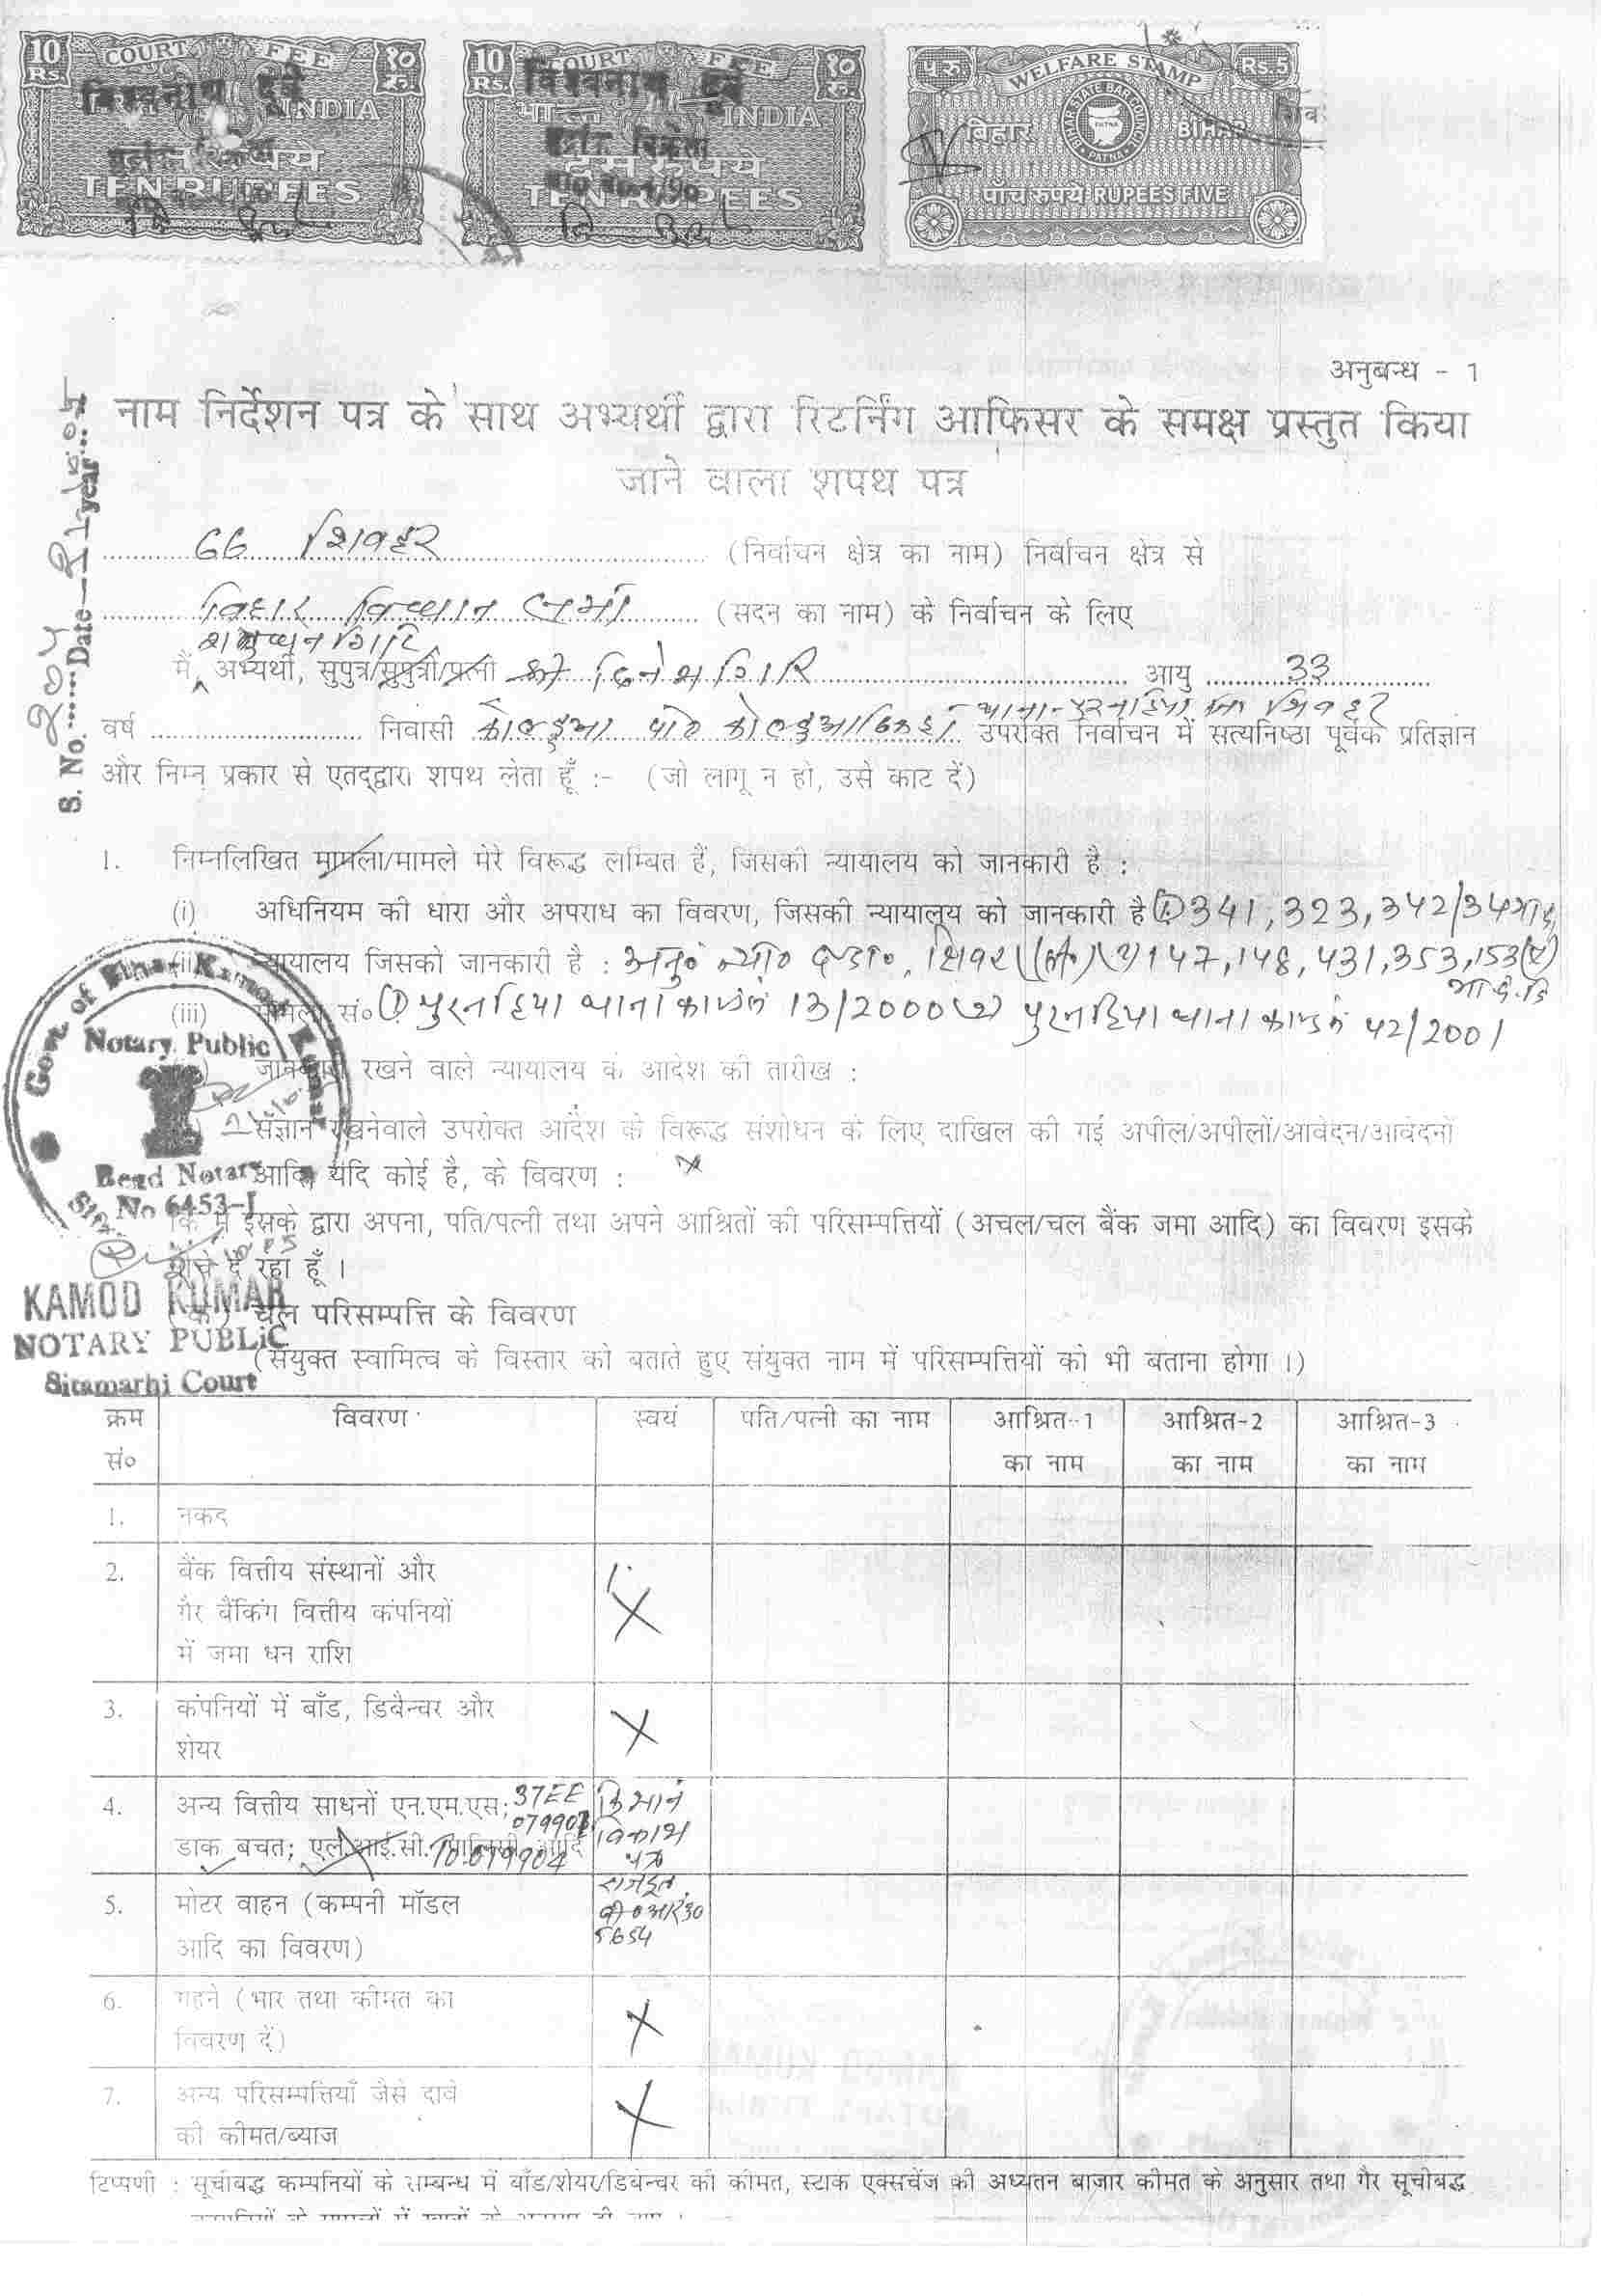 10 Rs. COURT FEE १० रु.
विश्वनाथ दूबे
INDIA
TEN RUPEES
10 Rs. COURT FEE १० रु.
विश्वनाथ दूबे
भारत INDIA
दस रुपये
TEN RUPEES
५ रु WELFARE STAMP Rs.5
BIHAR STATE BAR COUNCIL PATNA
बिहार BIHAR
पाँच रुपये RUPEES FIVE
अनुबन्ध - 1
नाम निर्देशन पत्र के साथ अभ्यर्थी द्वारा रिटर्निंग आफिसर के समक्ष प्रस्तुत किया
जाने वाला शपथ पत्र
S. No. Date year
66 शिवहर (निर्वाचन क्षेत्र का नाम) निर्वाचन क्षेत्र से
बिहार विधान सभा (सदन का नाम) के निर्वाचन के लिए
शत्रुघ्न गिरि
मैं, अभ्यर्थी, सुपुत्र/सुपुत्री/पत्नी श्री दिनेश गिरि आयु 33
थाना-पुरनहिया जिला शिवहर
वर्ष निवासी कोल्हुआ उपरोक्त निर्वाचन में सत्यनिष्ठा पूर्वक प्रतिज्ञान
और निम्न प्रकार से एतद्द्वारा शपथ लेता हूँ :- (जो लागू न हो, उसे काट दें)
1. निम्नलिखित मामला/मामले मेरे विरूद्ध लम्बित हैं, जिसकी न्यायालय को जानकारी है :
(i) अधिनियम की धारा और अपराध का विवरण, जिसकी न्यायालय को जानकारी है (1) 341, 323, 342/34
(ii) न्यायालय जिसको जानकारी है : अनु० न्या० दण्डा०, शिवहर (2) 147, 148, 431, 353, 153(ए)
भा.द.वि
(iii) मामला सं० (1) पुरनहिया थाना काण्ड सं 13/2000 (2) पुरनहिया थाना काण्ड सं 42/2001
जानकारी रखने वाले न्यायालय के आदेश की तारीख :
संज्ञान रखनेवाले उपरोक्त आदेश के विरूद्ध संशोधन के लिए दाखिल की गई अपील/अपीलों/आवेदन/आवेदनों
आदि, यदि कोई है, के विवरण : ×
कि मैं इसके द्वारा अपना, पति/पत्नी तथा अपने आश्रितों की परिसम्पत्तियों (अचल/चल बैंक जमा आदि) का विवरण इसके
नीचे दे रहा हूँ ।
(क) चल परिसम्पत्ति के विवरण
(संयुक्त स्वामित्व के विस्तार को बताते हुए संयुक्त नाम में परिसम्पत्तियों को भी बताना होगा ।)
Govt of Bihar Kamod Kumar
Notary Public
Regd Notary
No 6453-I
KAMOD KUMAR
NOTARY PUBLIC
Sitamarhi Court
क्रम सं० विवरण स्वयं पति/पत्नी का नाम आश्रित-1 का नाम आश्रित-2 का नाम आश्रित-3 का नाम
1. नकद
2. बैंक वित्तीय संस्थानों और
गैर बैंकिंग वित्तीय कंपनियों ×
में जमा धन राशि
3. कंपनियों में बाँड, डिबैन्चर और ×
शेयर
4. अन्य वित्तीय साधनों एन.एम.एस; 37EE किसान
079903 विकास
डाक बचत; एल.आई.सी. पालिसी आदि TO 079904 पत्र
5. मोटर वाहन (कम्पनी मॉडल राजदूत
आदि का विवरण) बी०आर०30
5654
6. गहने (भार तथा कीमत का ×
विवरण दें)
7. अन्य परिसम्पत्तियाँ जैसे दावे ×
की कीमत/ब्याज
टिप्पणी : सूचीबद्ध कम्पनियों के सम्बन्ध में बाँड/शेयर/डिबेन्चर की कीमत, स्टाक एक्सचेंज की अध्यतन बाजार कीमत के अनुसार तथा गैर सूचीबद्ध